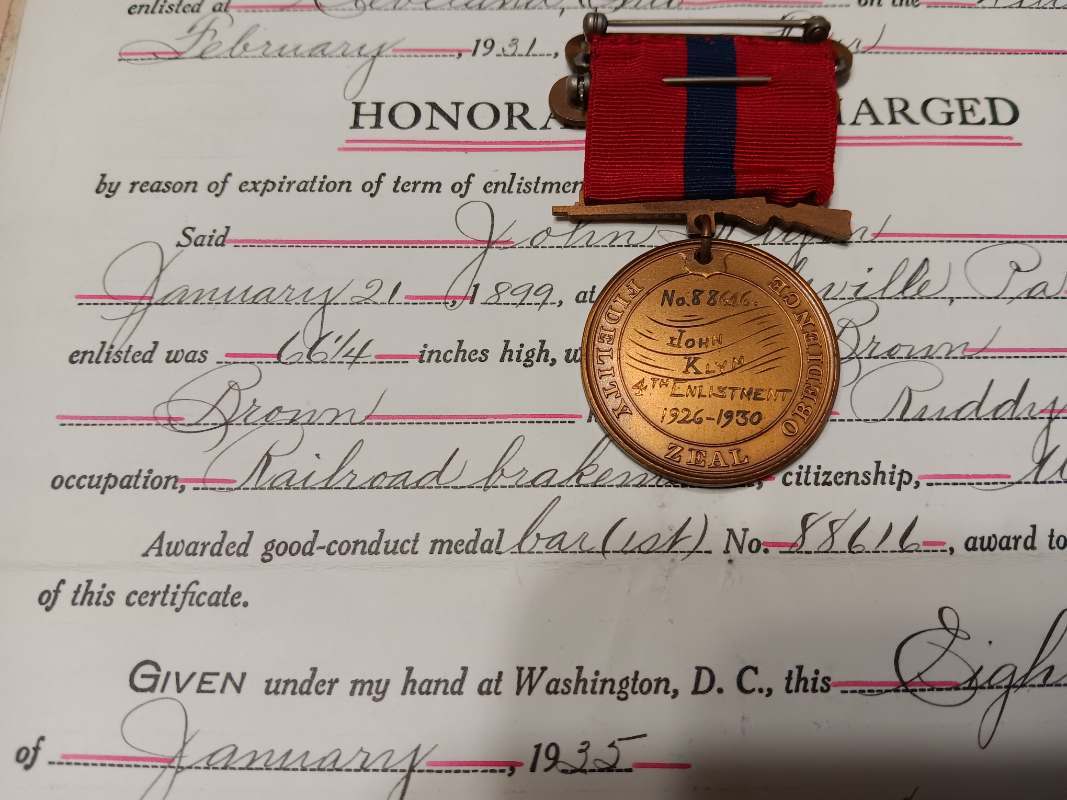 enlisted at Cleveland, Ohio on the
February, 1931,
HONORA ARGED
by reason of expiration of term of enlistmen
Said John Klym
January 21, 1899, at ville, Pa
enlisted was 66¼ inches high, Brown
Brown Ruddy
occupation, Railroad brakem citizenship,
Awarded good-conduct medal bar (1st) No. 88616, award to
of this certificate.
GIVEN under my hand at Washington, D. C., this Eigh
of January, 1935
FIDELITY
ZEAL
OBEDIENCE
No. 88616.
JOHN
KLYM
4TH ENLISTMENT
1926-1930